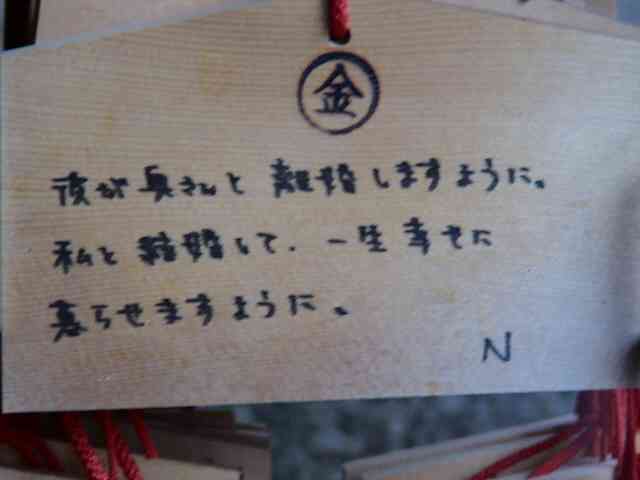 金
彼が奥さんと離婚しますように。
私と結婚して、一生幸せに
暮らせますように。
N